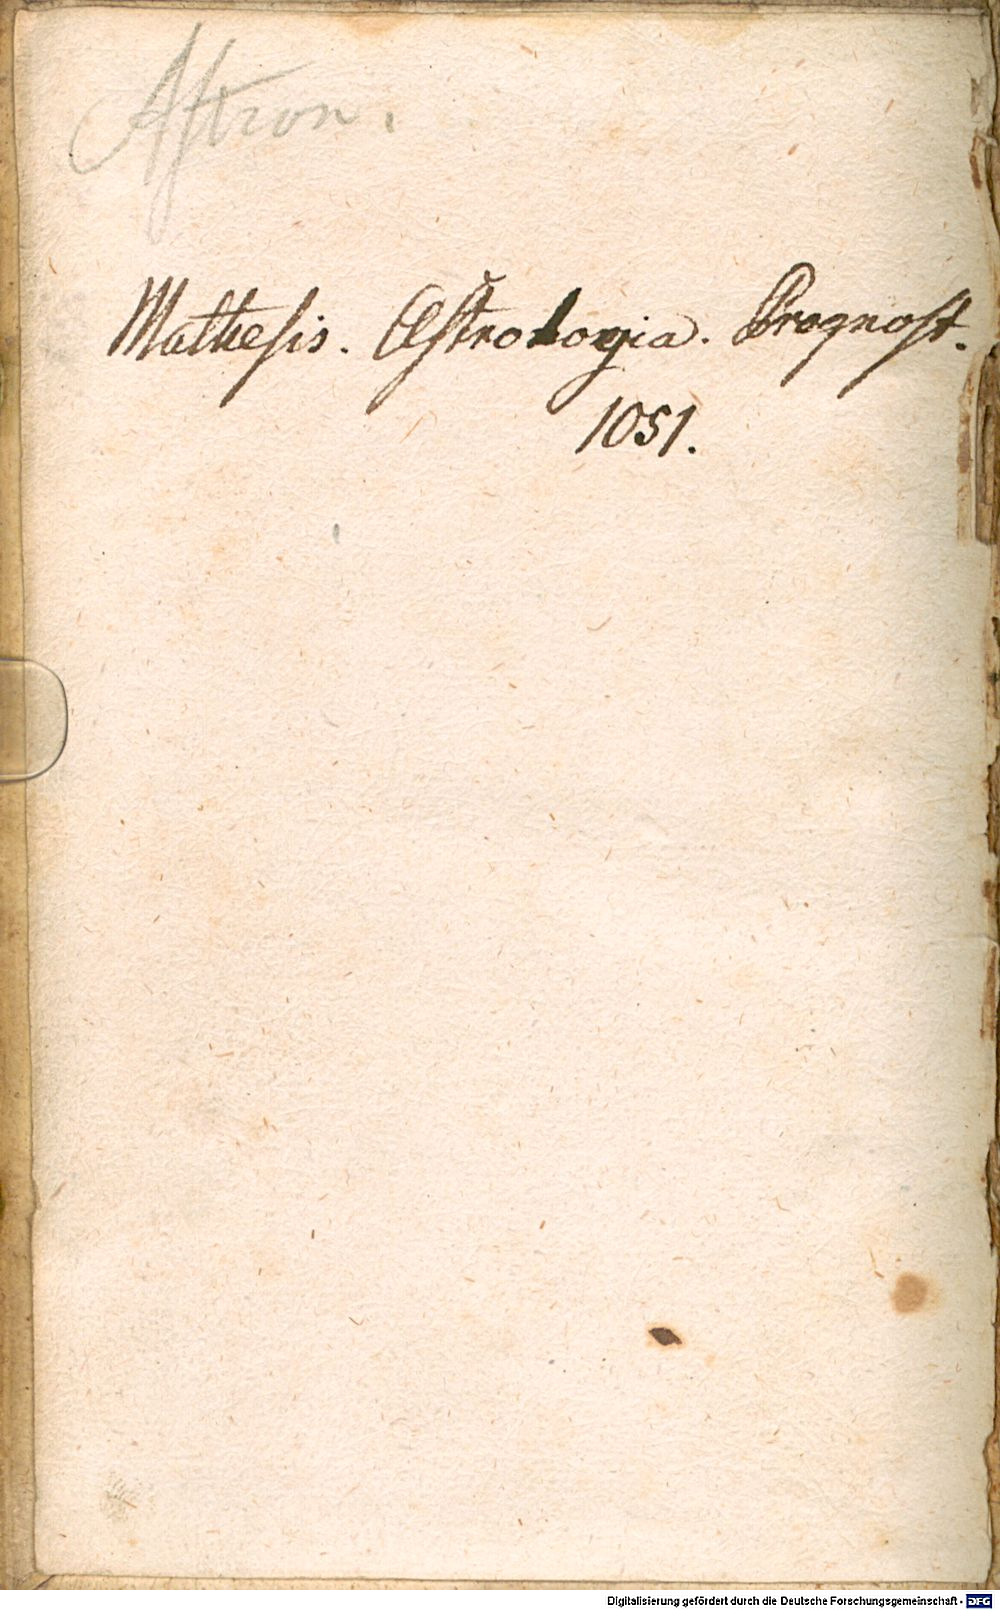 Astron.
Mathesis. Astrologia. Prognost.
1051.
Digitalisierung gefördert durch die Deutsche Forschungsgemeinschaft - DFG